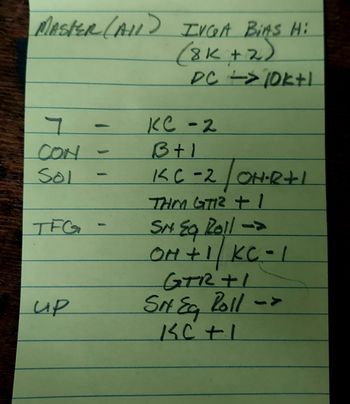 MASTER (All) IVGA BIAS Hi:
(8K + 2)
DC -> 10K+1
7 - KC - 2
CON - B + 1
SOI - KC - 2 / OH-R + 1
THM GTR + 1
TFG - SN EQ Roll ->
OH + 1 / KC - 1
GTR + 1
UP SN EQ Roll ->
KC + 1